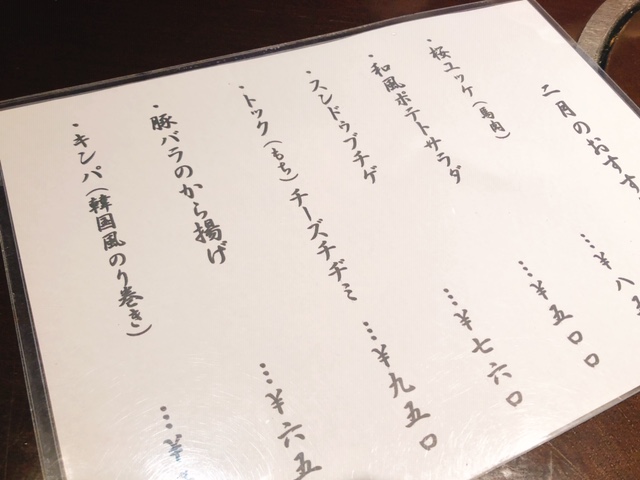 二月のおすす
・桜ユッケ(馬肉) …¥八五
・和風ポテトサラダ …¥五〇〇
・スンドゥブチゲ …¥七六〇
・トック(もち)チーズチヂミ …¥九五〇
・豚バラのから揚げ …¥六五
・キンパ(韓国風のり巻き) …¥